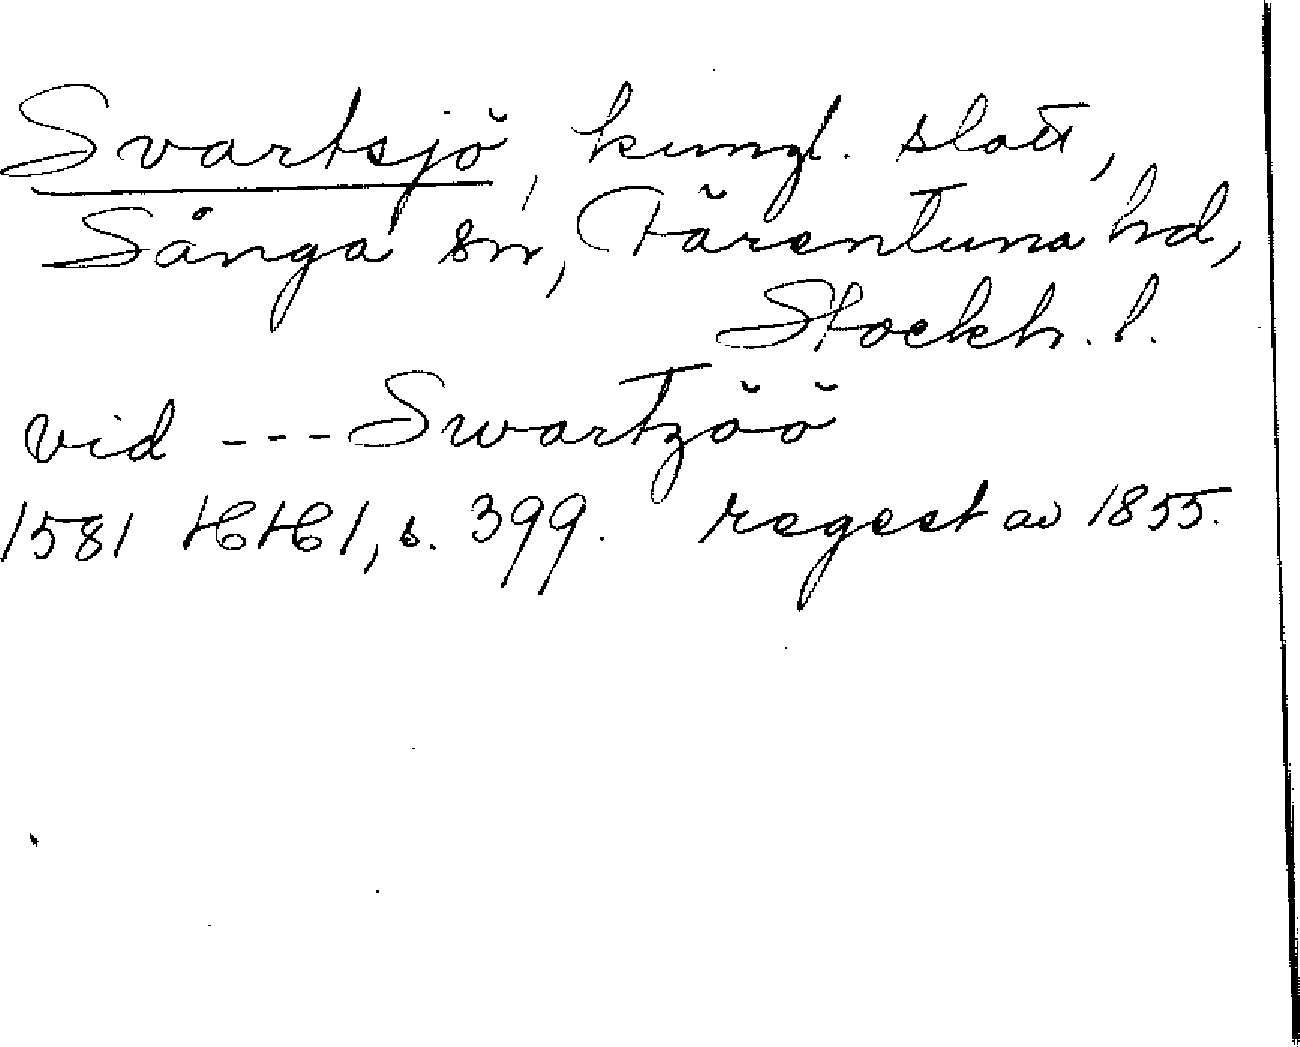 Svartsjö, kungl. slott,
Sånga sn, Färentuna hd,
Stockh. l.
vid --- Swartzöö
1581 HH 1, s. 399. regest av 1855.